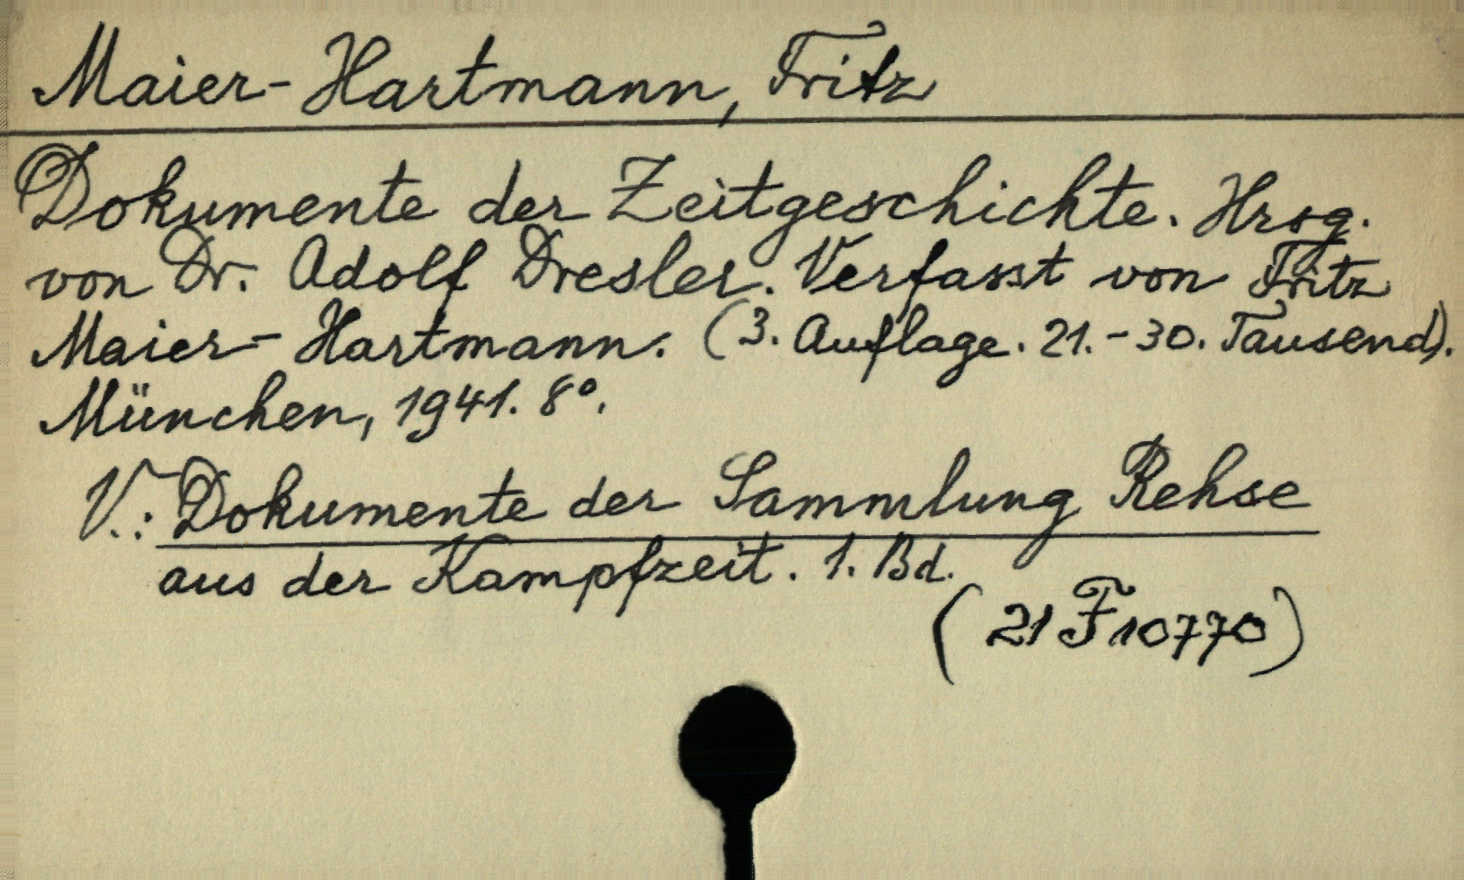 Maier-Hartmann, Fritz
Dokumente der Zeitgeschichte. Hrsg.
von Dr. Adolf Dresler. Verfasst von Fritz
Maier-Hartmann. (3. Auflage. 21.-30. Tausend).
München, 1941. 8°.
V.: Dokumente der Sammlung Rehse
aus der Kampfzeit. 1. Bd.
(21 F 10770)